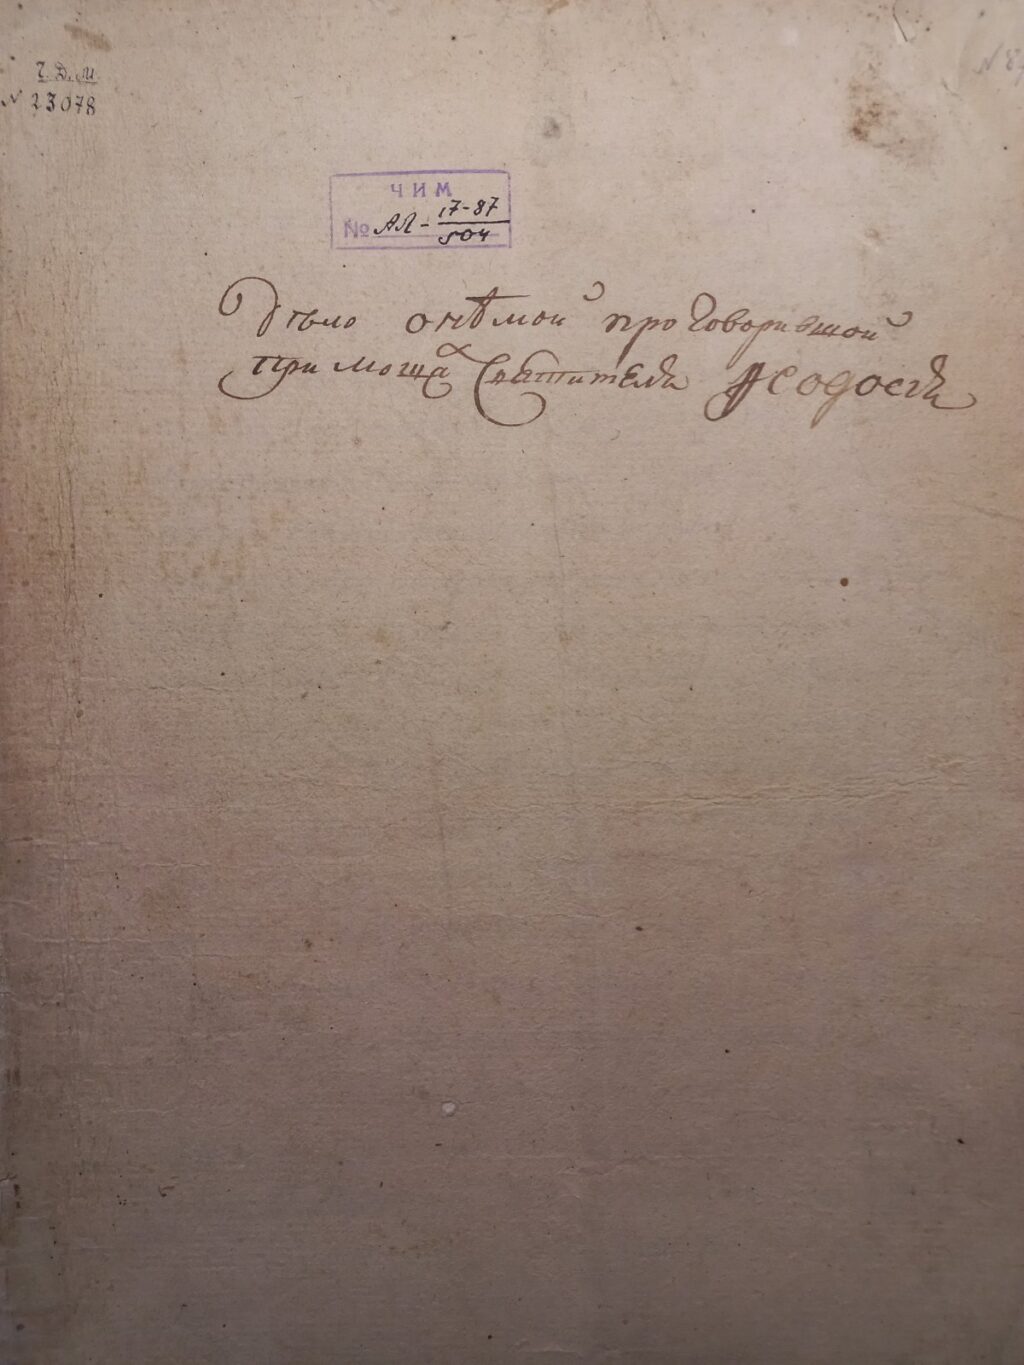 Ч. Д. М.
№ 23078
ЧИМ
№ АЛ - 17-87
504
Дѣло о нѣмой проговорившой
при мощах Святителя Ѳеодосія